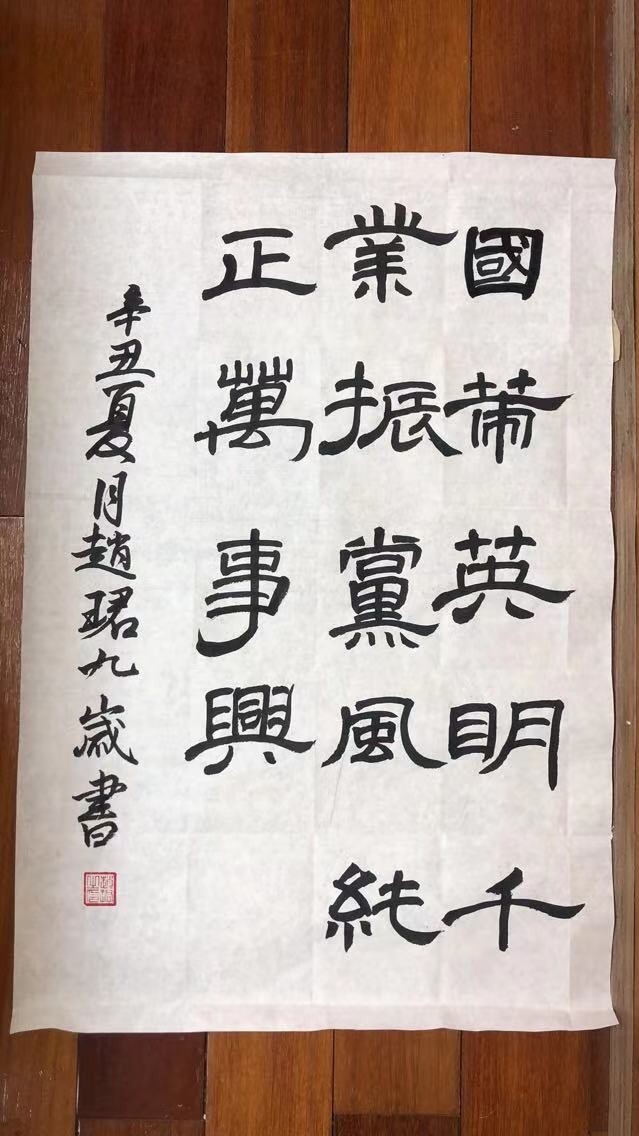 國策英明千
業振黨風純
正萬事興
辛丑夏月趙珺九歲書